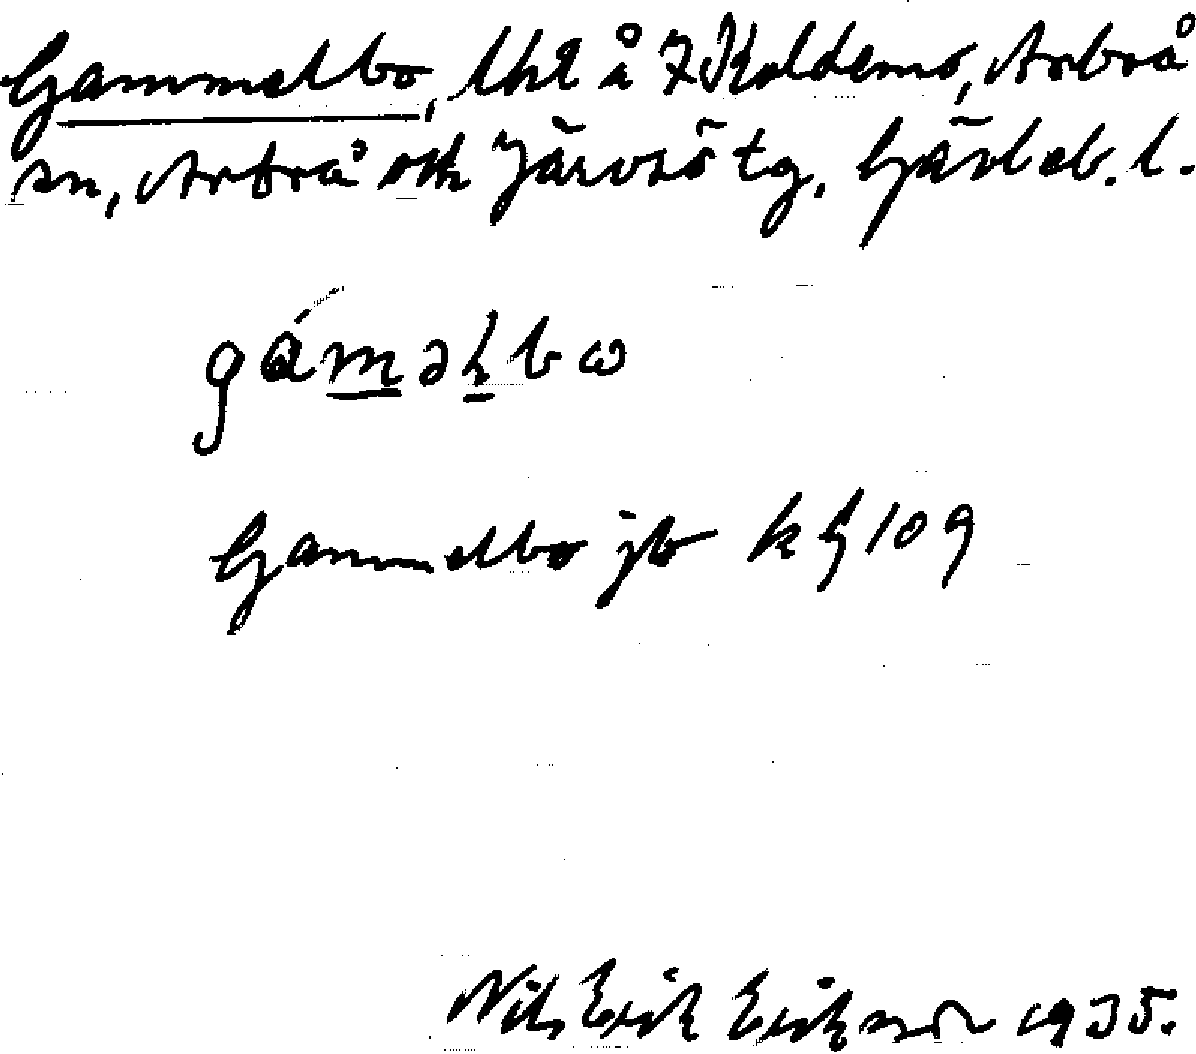 Gammelbo, lht å 7 Koldemo, Arbrå
sn, Arbrå och Järvsö tg, Gävleb. l.
gáməɭbω
Gammelbo jb k h 109
Nils Erik Eriksson 1935.